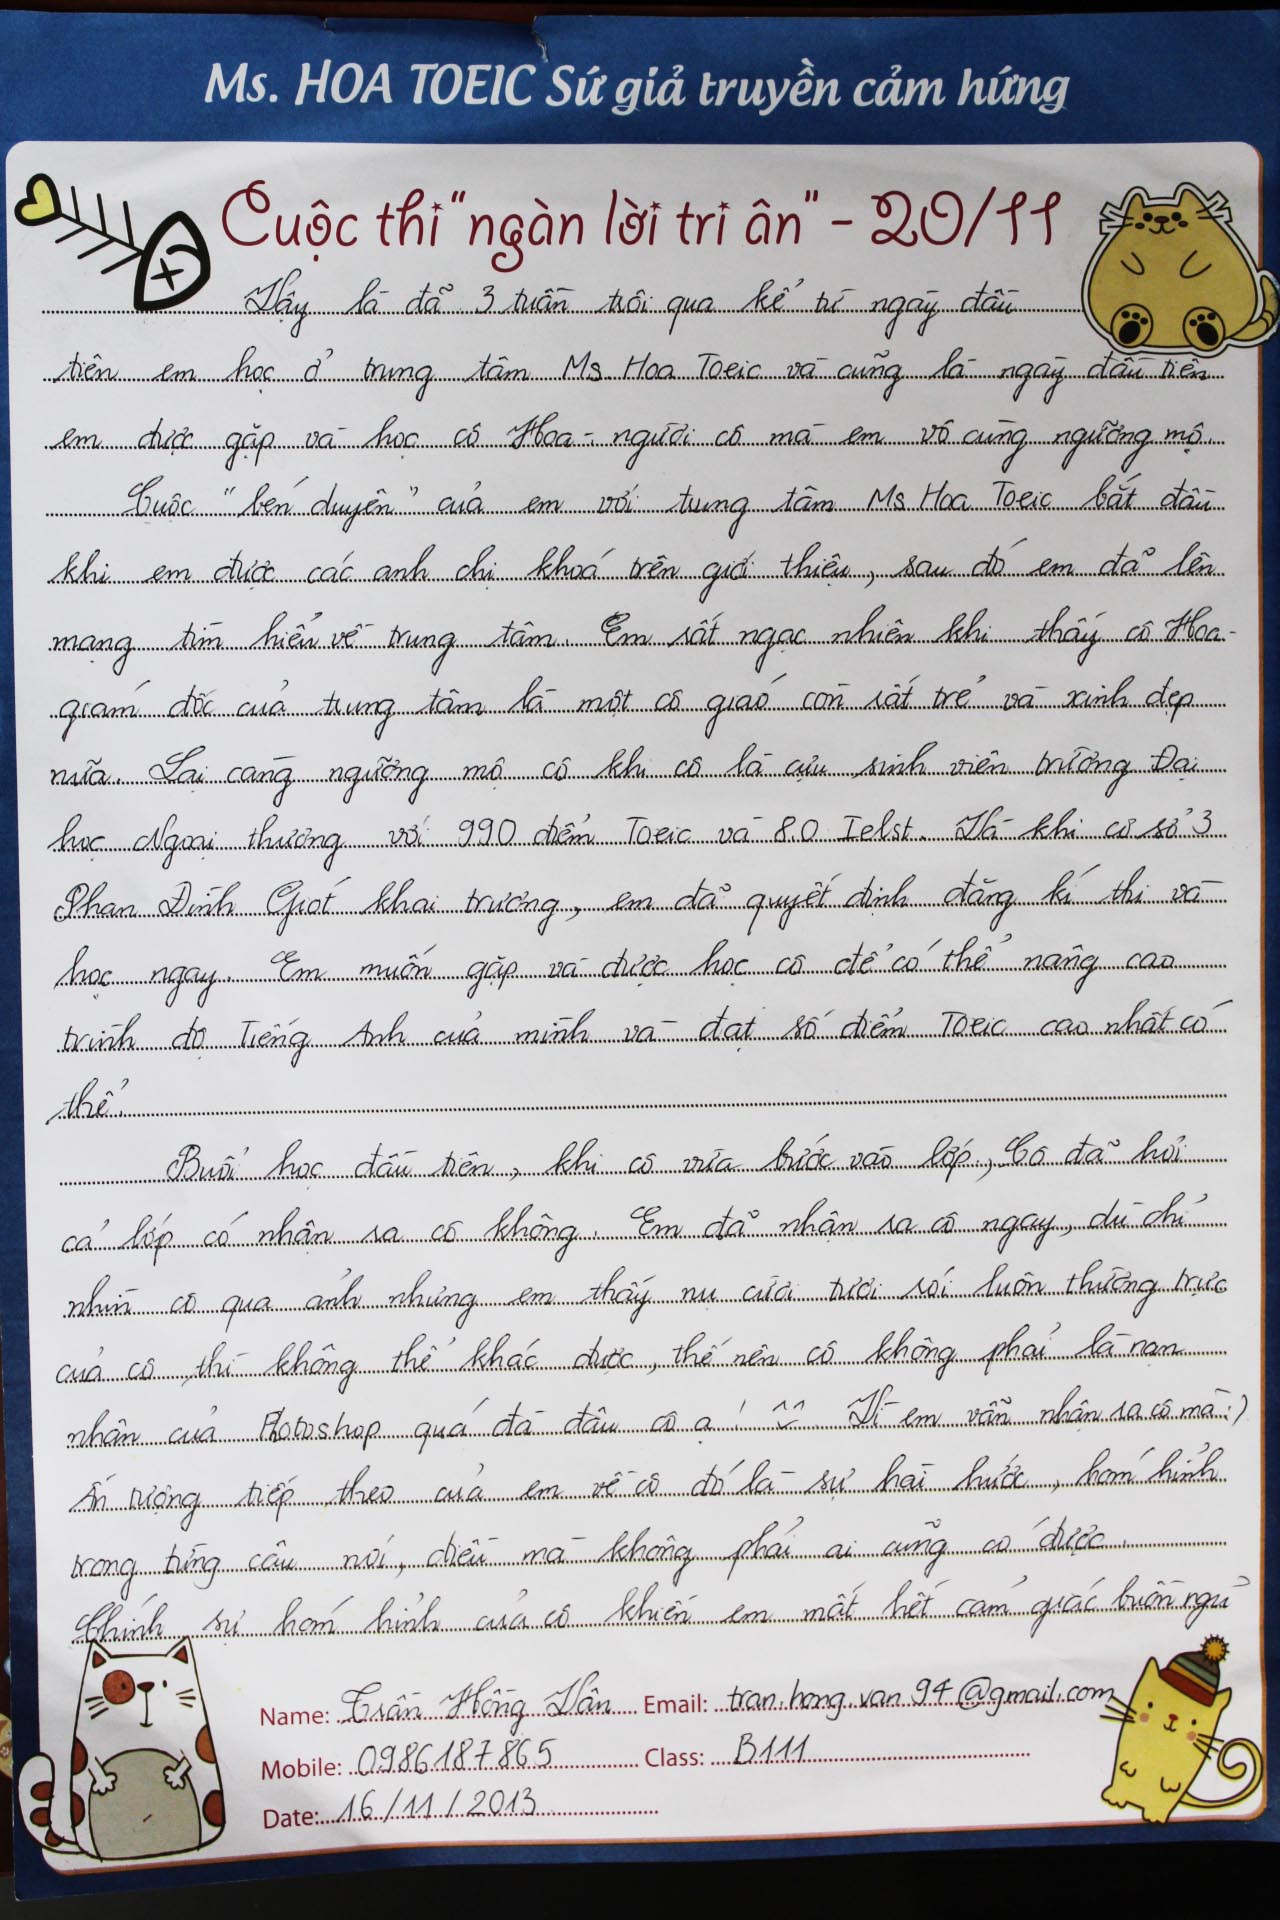 Ms. HOA TOEIC Sứ giả truyền cảm hứng
Cuộc thi "ngàn lời tri ân" - 20/11
Vậy là đã 3 tuần trôi qua kể từ ngày đầu
tiên em học ở trung tâm Ms. Hoa Toeic và cũng là ngày đầu tiên
em được gặp và học cô Hoa - người cô mà em vô cùng ngưỡng mộ.
Cuộc "bén duyên" của em với trung tâm Ms Hoa Toeic bắt đầu
khi em được các anh chị khoá trên giới thiệu, sau đó em đã lên
mạng tìm hiểu về trung tâm. Em rất ngạc nhiên khi thấy cô Hoa -
giám đốc của trung tâm là một cô giáo còn rất trẻ và xinh đẹp
nữa. Lại càng ngưỡng mộ cô khi cô là cựu sinh viên trường Đại
học Ngoại thương với 990 điểm Toeic và 8.0 Ielst. Và khi cơ sở 3
Phan Đình Giót khai trương, em đã quyết định đăng kí thi và
học ngay. Em muốn gặp và được học cô để có thể nâng cao
trình độ Tiếng Anh của mình và đạt số điểm Toeic cao nhất có
thể.
Buổi học đầu tiên, khi cô vừa bước vào lớp, Cô đã hỏi
cả lớp có nhận ra cô không. Em đã nhận ra cô ngay, dù chỉ
nhìn cô qua ảnh nhưng em thấy nụ cười tươi rói luôn thường trực
của cô thì không thể khác được, thế nên cô không phải là nạn
nhân của Photoshop quá đà đâu cô ạ! ^^ Vì em vẫn nhận ra cô mà :)
Ấn tượng tiếp theo của em về cô đó là sự hài hước, hóm hỉnh
trong từng câu nói, điều mà không phải ai cũng có được.
Chính sự hóm hỉnh của cô khiến em mất hết cảm giác buồn ngủ
Name: Trần Hồng Vân Email: tran.hong.van94@gmail.com
Mobile: 0986187865 Class: B111
Date: 16/11/2013